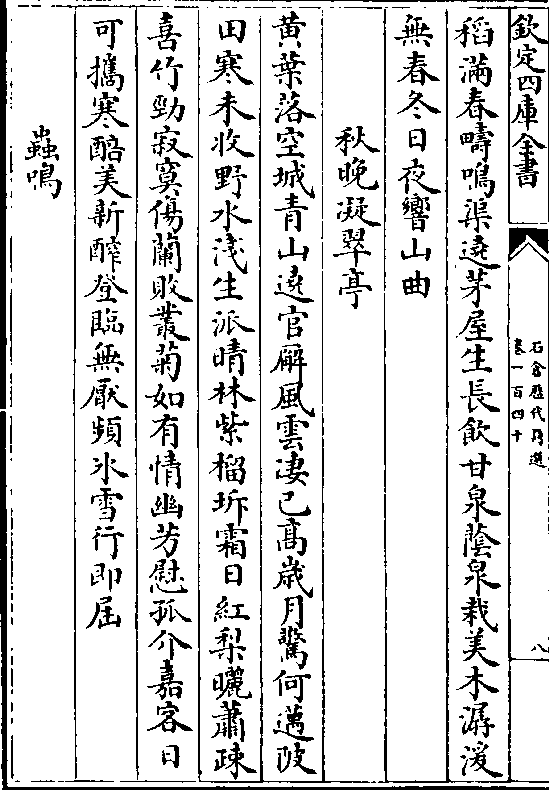 欽定四庫全書
石倉歷代詩選
卷一百四十
八
稻滿春疇鳴渠遶茅屋生長飲甘泉蔭泉栽美木潺湲
無春冬日夜響山曲
秋晚凝翠亭
黃葉落空城青山遶官廨風雲凄已高歲月驚何邁陂
田寒未收野水淺生派晴林紫榴坼霜日紅梨曬蕭疎
喜竹勁寂寞傷蘭敗叢菊如有情幽芳慰孤介嘉客日
可攜寒醅美新醡登臨無厭頻氷雪行即屆
蟲鳴